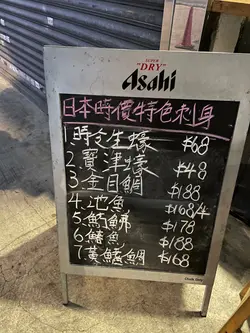 SUPER
"DRY"
Asahi
日本時價特色刺身
1.時令生蠔 $68
2.寶津蠔 $48
3.金目鯛 $188
4.池魚 $168/4
5.鰤鯡 $178
6.鰆魚 $188
7.黃鰭鯛 $168